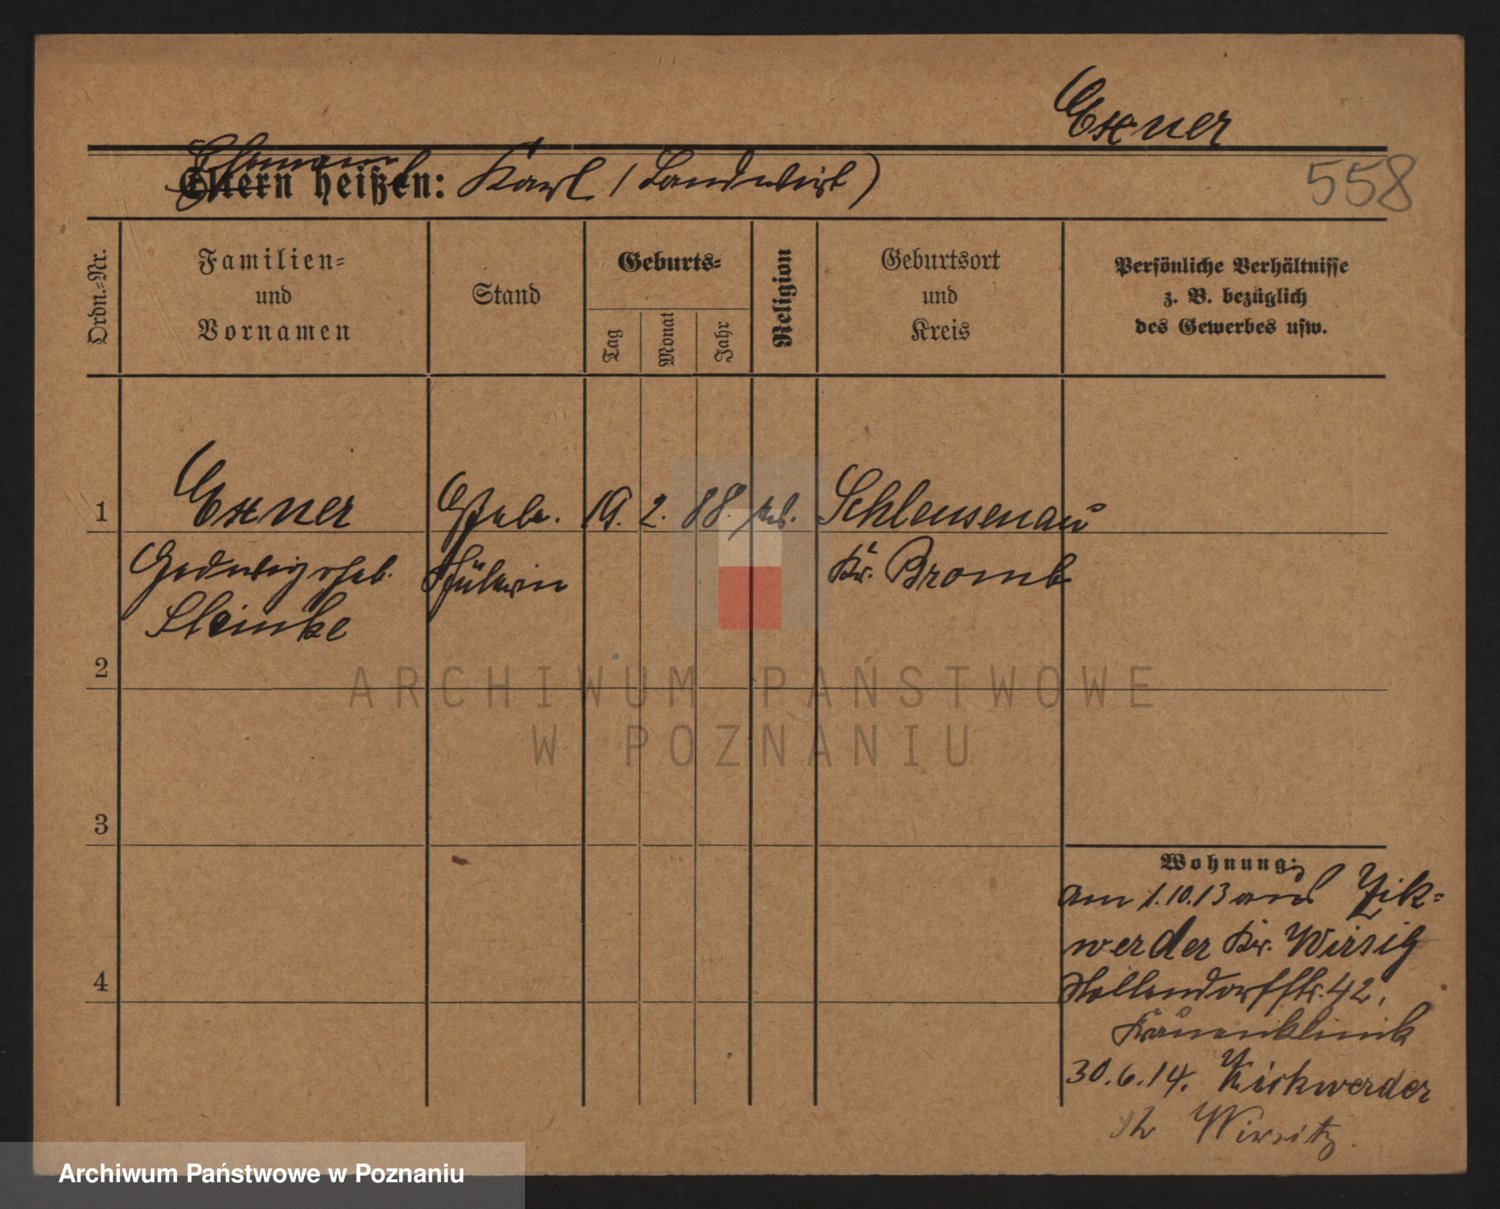 Exner
Ehemann heißen: Karl (Landwirt)
558
Ordn.-Nr.
Familien-
und
Vornamen
Stand
Geburts-
Tag
Monat
Jahr
Religion
Geburtsort
und
Kreis
Persönliche Verhältnisse
z. B. bezüglich
des Gewerbes usw.
1
Exner
19. 2. 88.
Schleusenau
Hedwig geb.
Schülerin
Kr. Bromb
Steinke
2
ARCHIWUM PAŃSTWOWE
W POZNANIU
3
Wohnung:
am 1.10.13 aus
werder Kr. Wirsitz
42,
Frauenklinik
4
30.6.14.
Wirsitz.
Archiwum Państwowe w Poznaniu